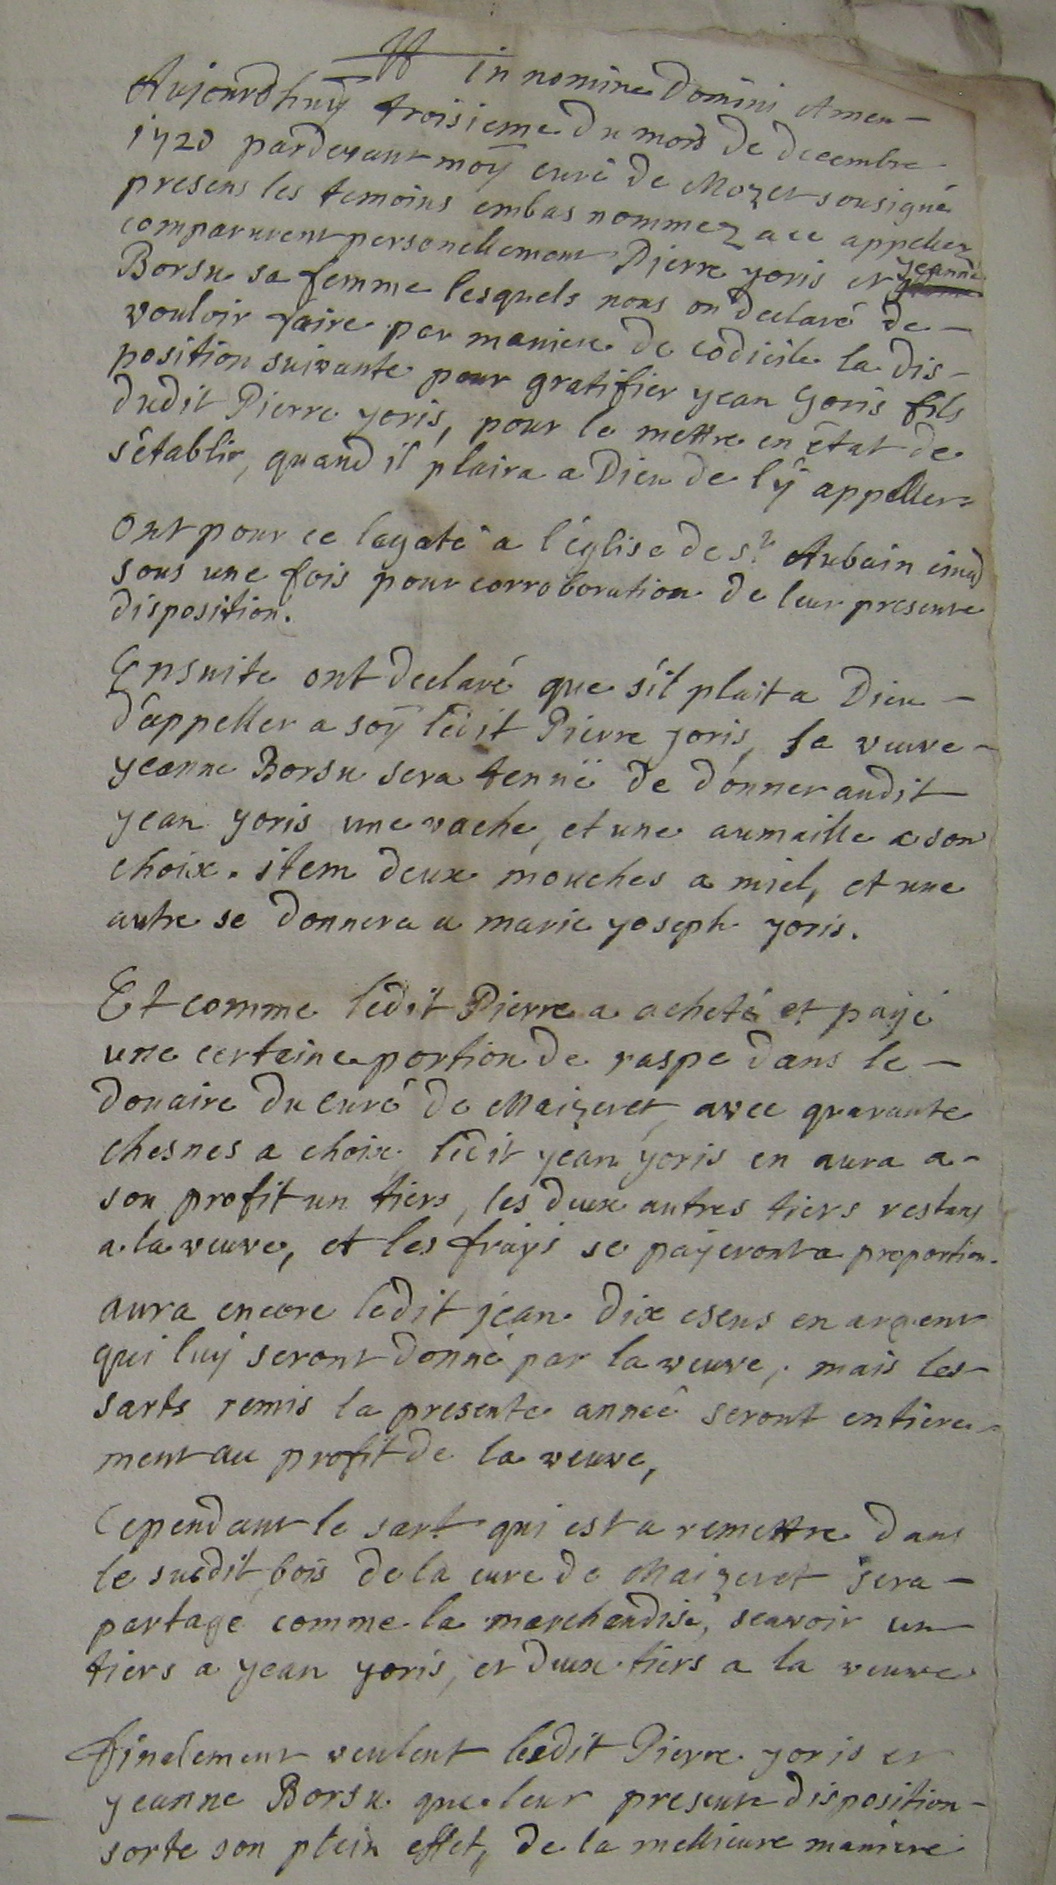 in nomine Domini Amen -
Aujourdhuÿ troisieme du mois de decembre
1720 pardevant moÿ curé de Mozet sousigné
presens les temoins embas nommez a ce appellez
comparurent personellement Pierre yoris et yeanne
Borsu sa femme lesquels nous on declaré de -
vouloir faire par maniere de codicile la dis-
position suivante pour gratifier yean yoris fils
dudit Pierre yoris, pour le mettre en êtat de
s'établir, quand il plaira a Dieu de l'ÿ appeller=
Ont pour ce legaté a l'église de St Aubain cinq
sous une fois pour corroboration de leur presente
disposition.
Ensuite ont declaré que s'il plait a Dieu -
d'appeller a soÿ ledit Pierre yoris, la veuve -
yeanne Borsu sera tennüe de donner audit
yean yoris une vache, et une aumaille a son
choix. item deux mouches a miel, et une
autre se donnera a marie yoseph yoris.
Et comme ledit Pierre a acheté et payé
une certaine portion de raspe dans le -
douaire du curé de Maizeret, avec quarante
chesnes a choix, ledit yean yoris en aura a -
son profit un tiers, les deux autres tiers restans
a la veuve, et les frays se payeront a proportion.
aura encore ledit jean dix escus en argent
qui luÿ seront donné par la veuve, mais les
sarts remis la presente année seront entiere-
ment au profit de la veuve,
Cependant le sart qui est a remettre dans
le susdit bois de la cure de Maizeret sera -
partagé comme la marchandise, scavoir un
tiers a yean yoris, et deux tiers a la veuve
finalement veulent ledit Pierre yoris et
yeanne Borsu que leur presente disposition -
sorte son plein effet, de la mellieure maniere